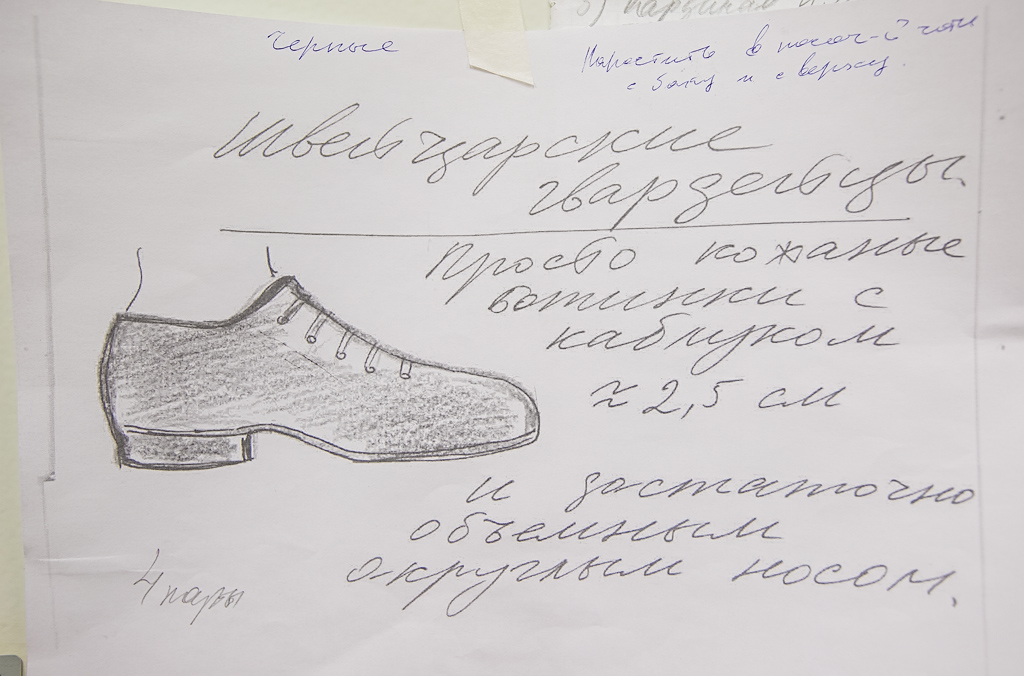 5) кардинал
черные
Нарастить в носоч-й части
с боку и с верху.
Швейцарские
гвардейцы.
Просто кожаные
ботинки с
каблуком
≈ 2,5 см
и достаточно
объемным
округлым носом.
4 пары